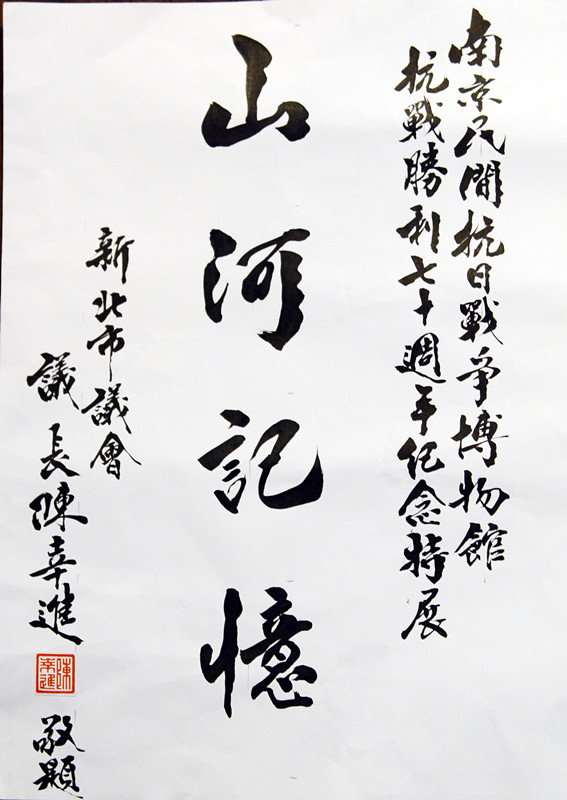 南京民間抗日戰爭博物館
抗戰勝利七十週年纪念特展
山河記憶
新北市議會
議長陳幸進
陳幸進
敬題